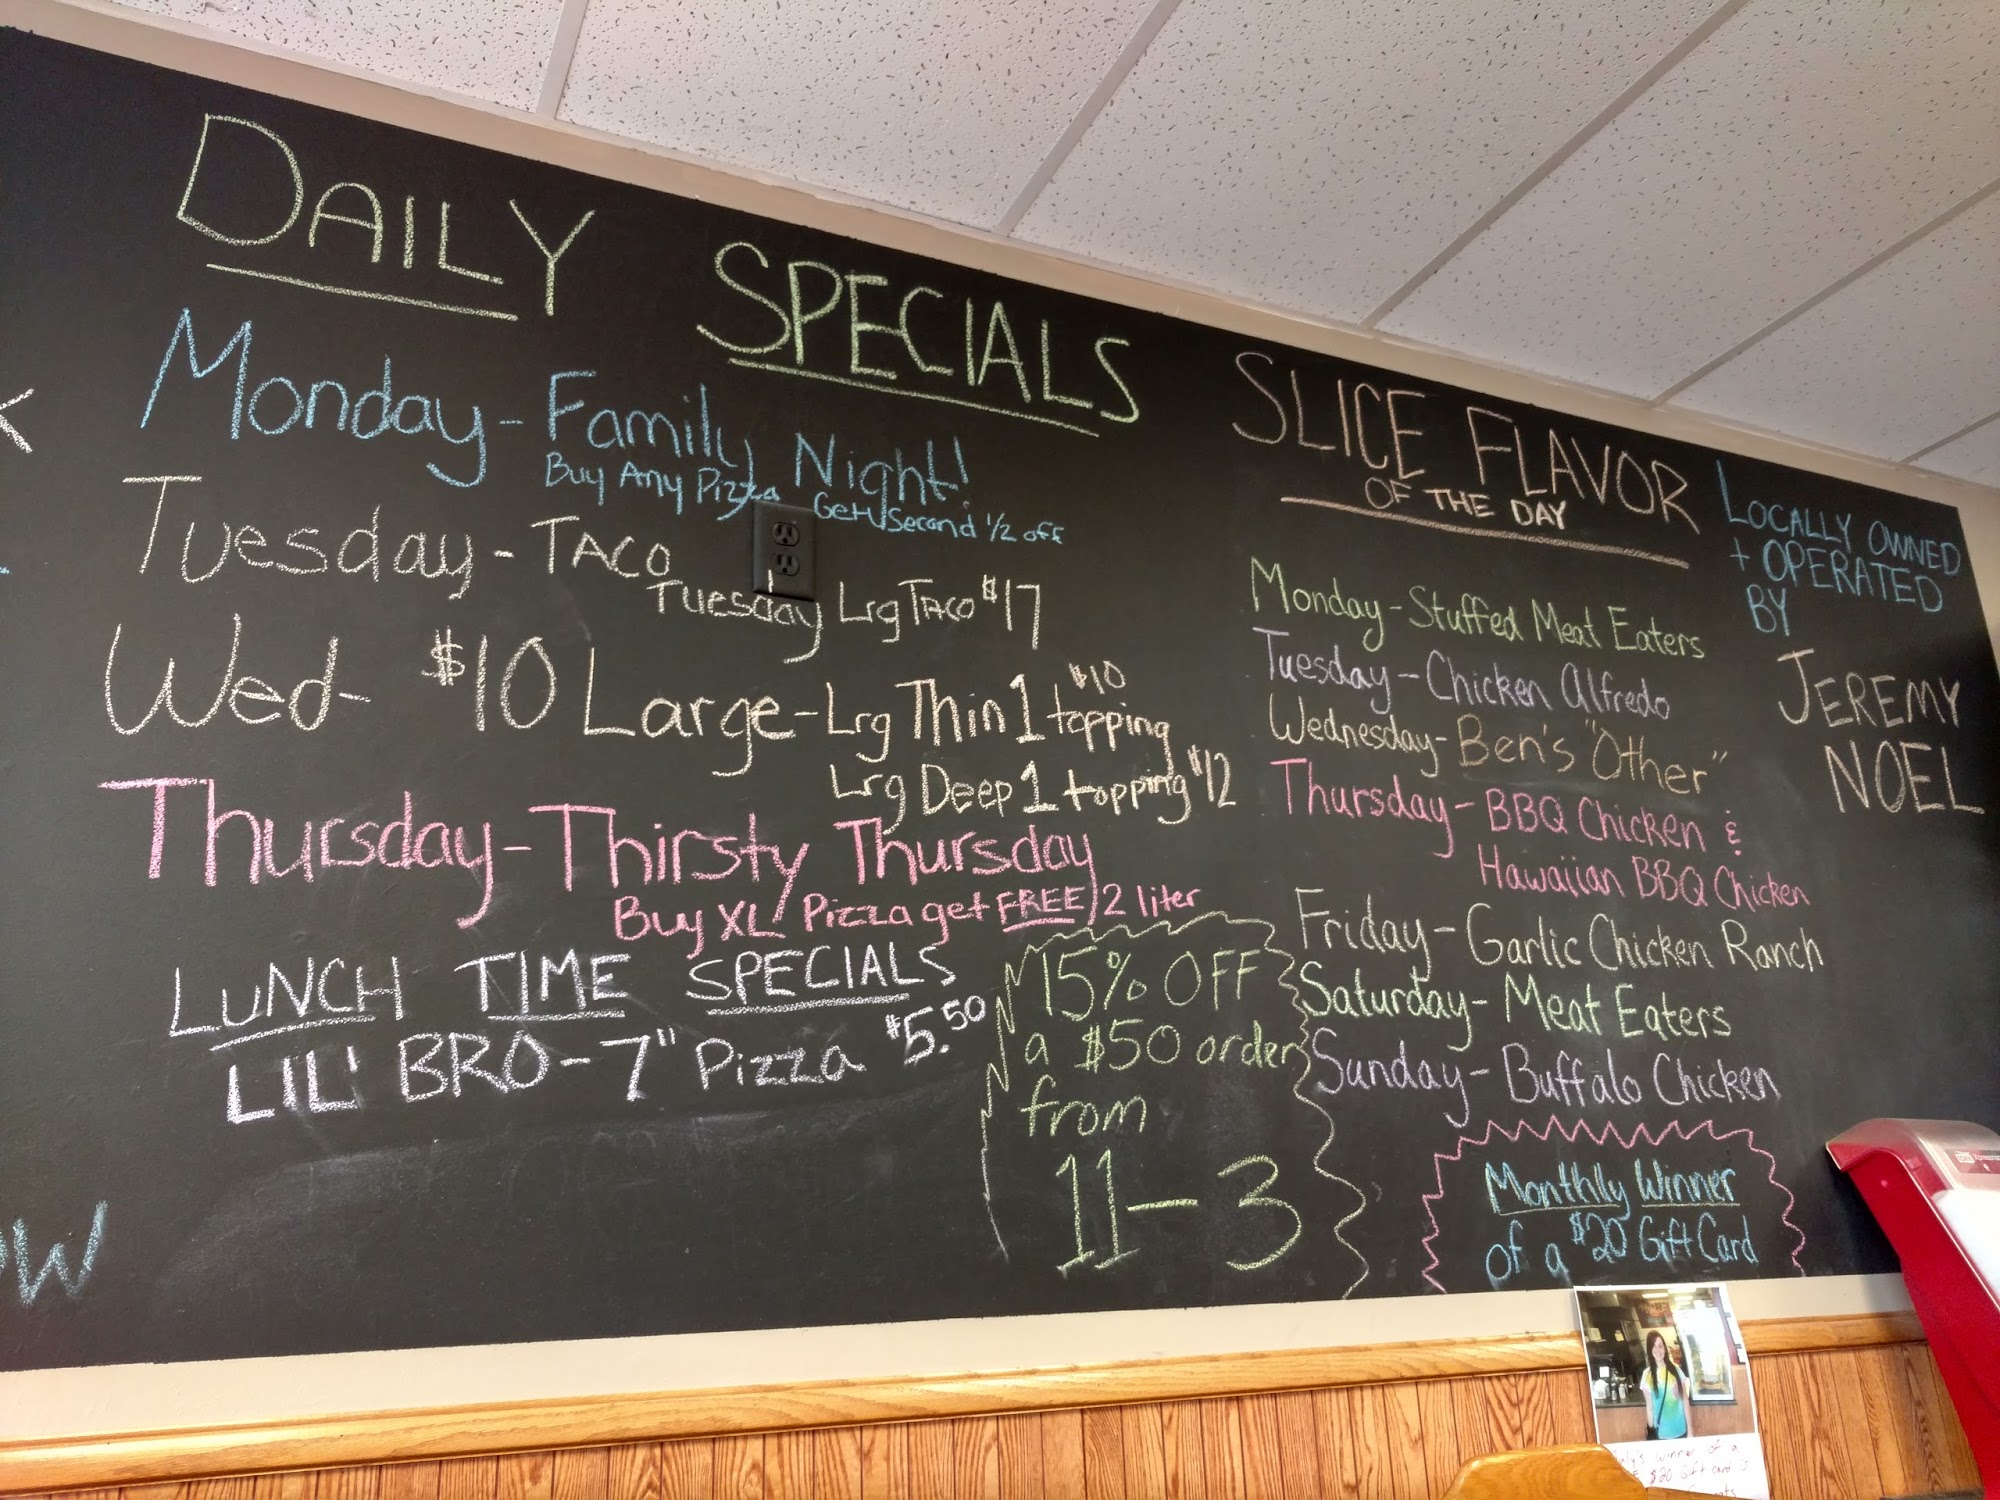 DAILY SPECIALS
Monday - Family Night!
Buy Any Pizza Get Second 1/2 off
Tuesday - TACO
Tuesday Lrg TACO $17
Wed- $10 Large - Lrg Thin 1 topping $10
Lrg Deep 1 topping $12
Thursday - Thirsty Thursday
Buy XL Pizza get FREE 2 liter
LUNCH TIME SPECIALS
LIL' BRO - 7" Pizza $5.50
15% OFF
a $50 order
from
11-3
SLICE FLAVOR
OF THE DAY
Monday - Stuffed Meat Eaters
Tuesday - Chicken Alfredo
Wednesday - Ben's "Other"
Thursday - BBQ Chicken &
Hawaiian BBQ Chicken
Friday - Garlic Chicken Ranch
Saturday - Meat Eaters
Sunday - Buffalo Chicken
LOCALLY OWNED
+ OPERATED
BY
JEREMY
NOEL
Monthly Winner
of a $20 Gift Card
winner of a
$20 Gift card